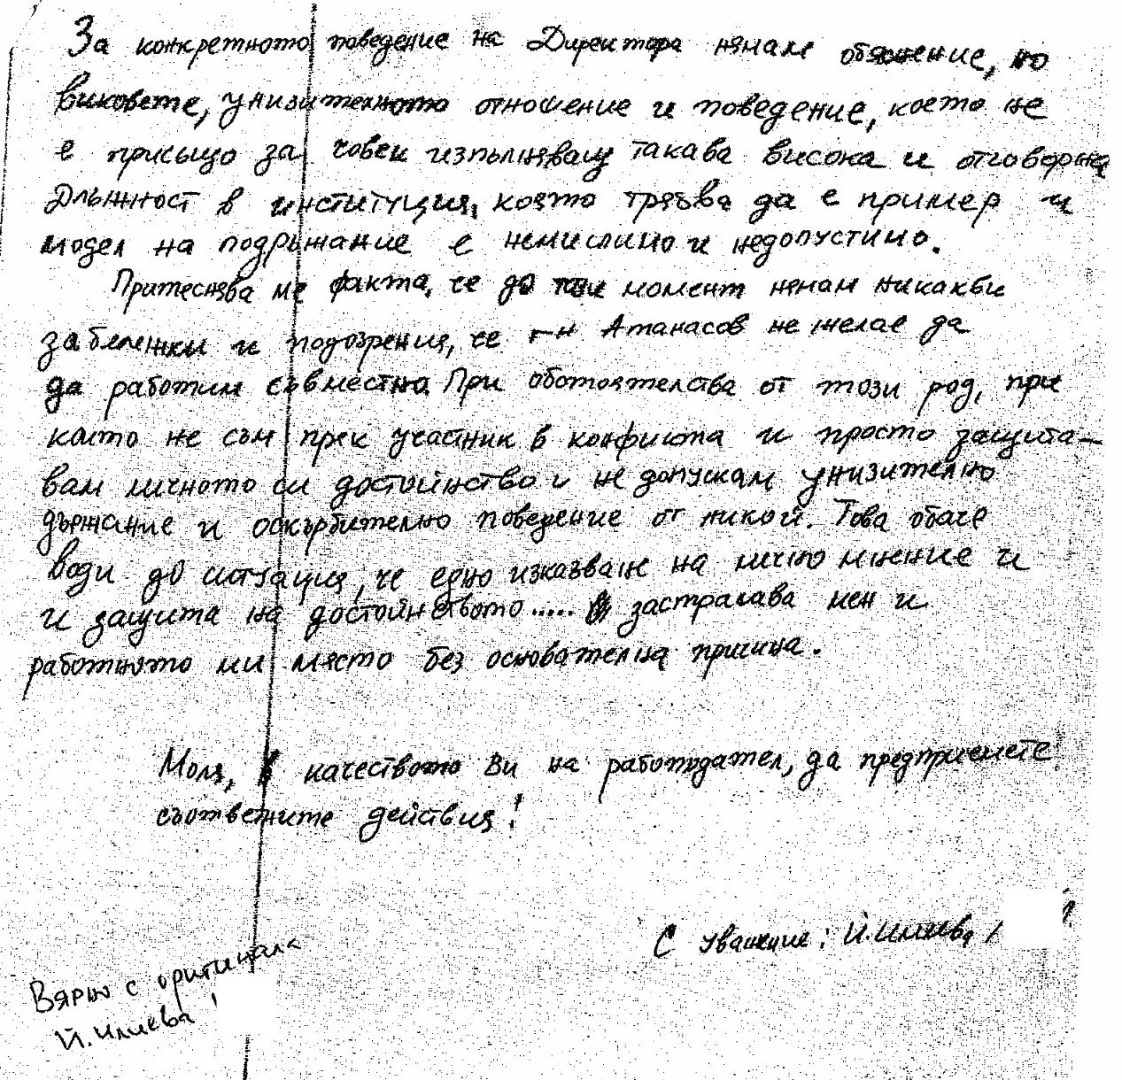 За конкретното поведение на Директора нямам обяснение, но
виковете, унизителното отношение и поведение, което не
е присъщо за човек изпълняващ такава висока и отговорна
длъжност в институция, която трябва да е пример и
модел на подръжание е немислимо и недопустимо.
Притеснява ме факта, че до този момент нямам никакви
забележки и подозрения, че г-н Атанасов не желае да
да работим съвместно. При обстоятелства от този род, при
които не съм пряк участник в конфликта и просто защита-
вам личното си достойнство и не допускам унизително
държание и оскърбително поведение от никой. Това обаче
води до ситуация, че едно изказване на лично мнение и
и защита на достойнството..... застрашава мен и
работното ми място без основателна причина.
Моля, в качеството Ви на работодател, да предприемете
съответните действия!
С уважение: Й. Илиева /
Вярно с оригинала
Й. Илиева !